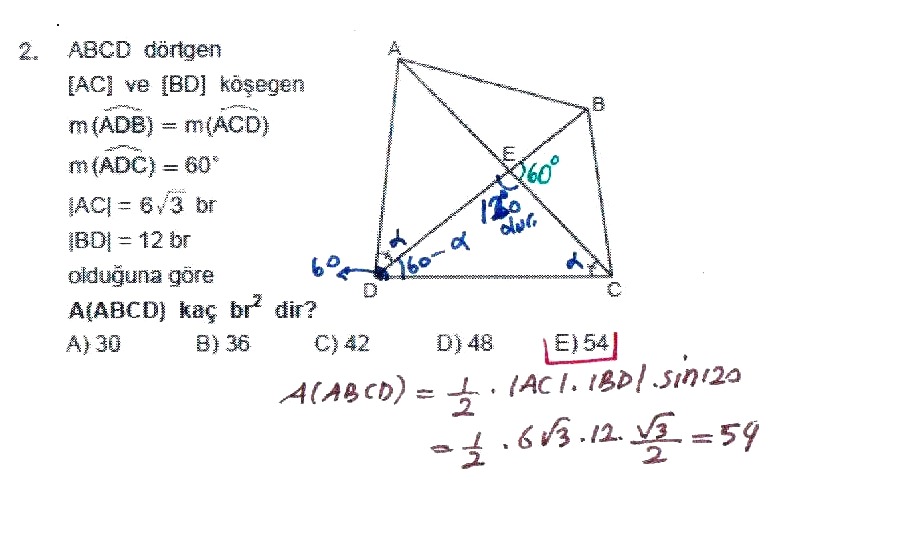 2. ABCD dörtgen
[AC] ve [BD] köşegen
m(ADB) = m(ACD)
m(ADC) = 60°
|AC| = 6√3 br
|BD| = 12 br
olduğuna göre
A(ABCD) kaç br² dir?
A) 30 B) 36 C) 42 D) 48 E) 54
A
B
E
60°
120
dur.
α
60-α
60
α
D
C
A(ABCD) = 1/2 . |AC|. |BD|. sin120
= 1/2 . 6√3 . 12 . √3/2 = 54